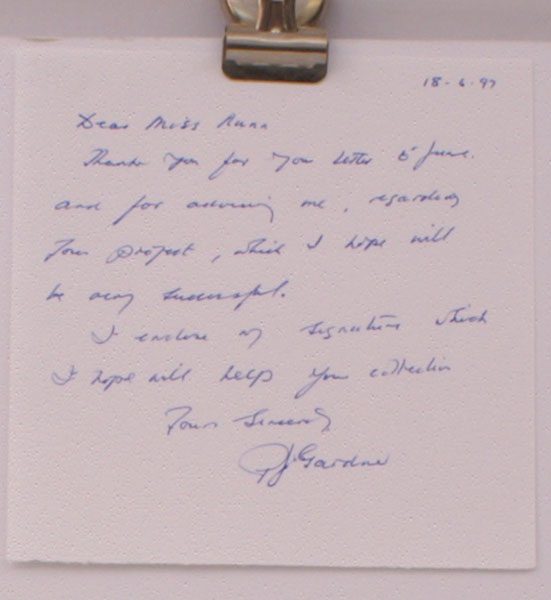 18-6-97
Dear Miss Runn
Thank you for your letter 5 June.
and for advising me, regarding
your project, which I hope will
be very successful.
I enclose my signature which
I hope will help your collection
Yours Sincerely
J. Gardner